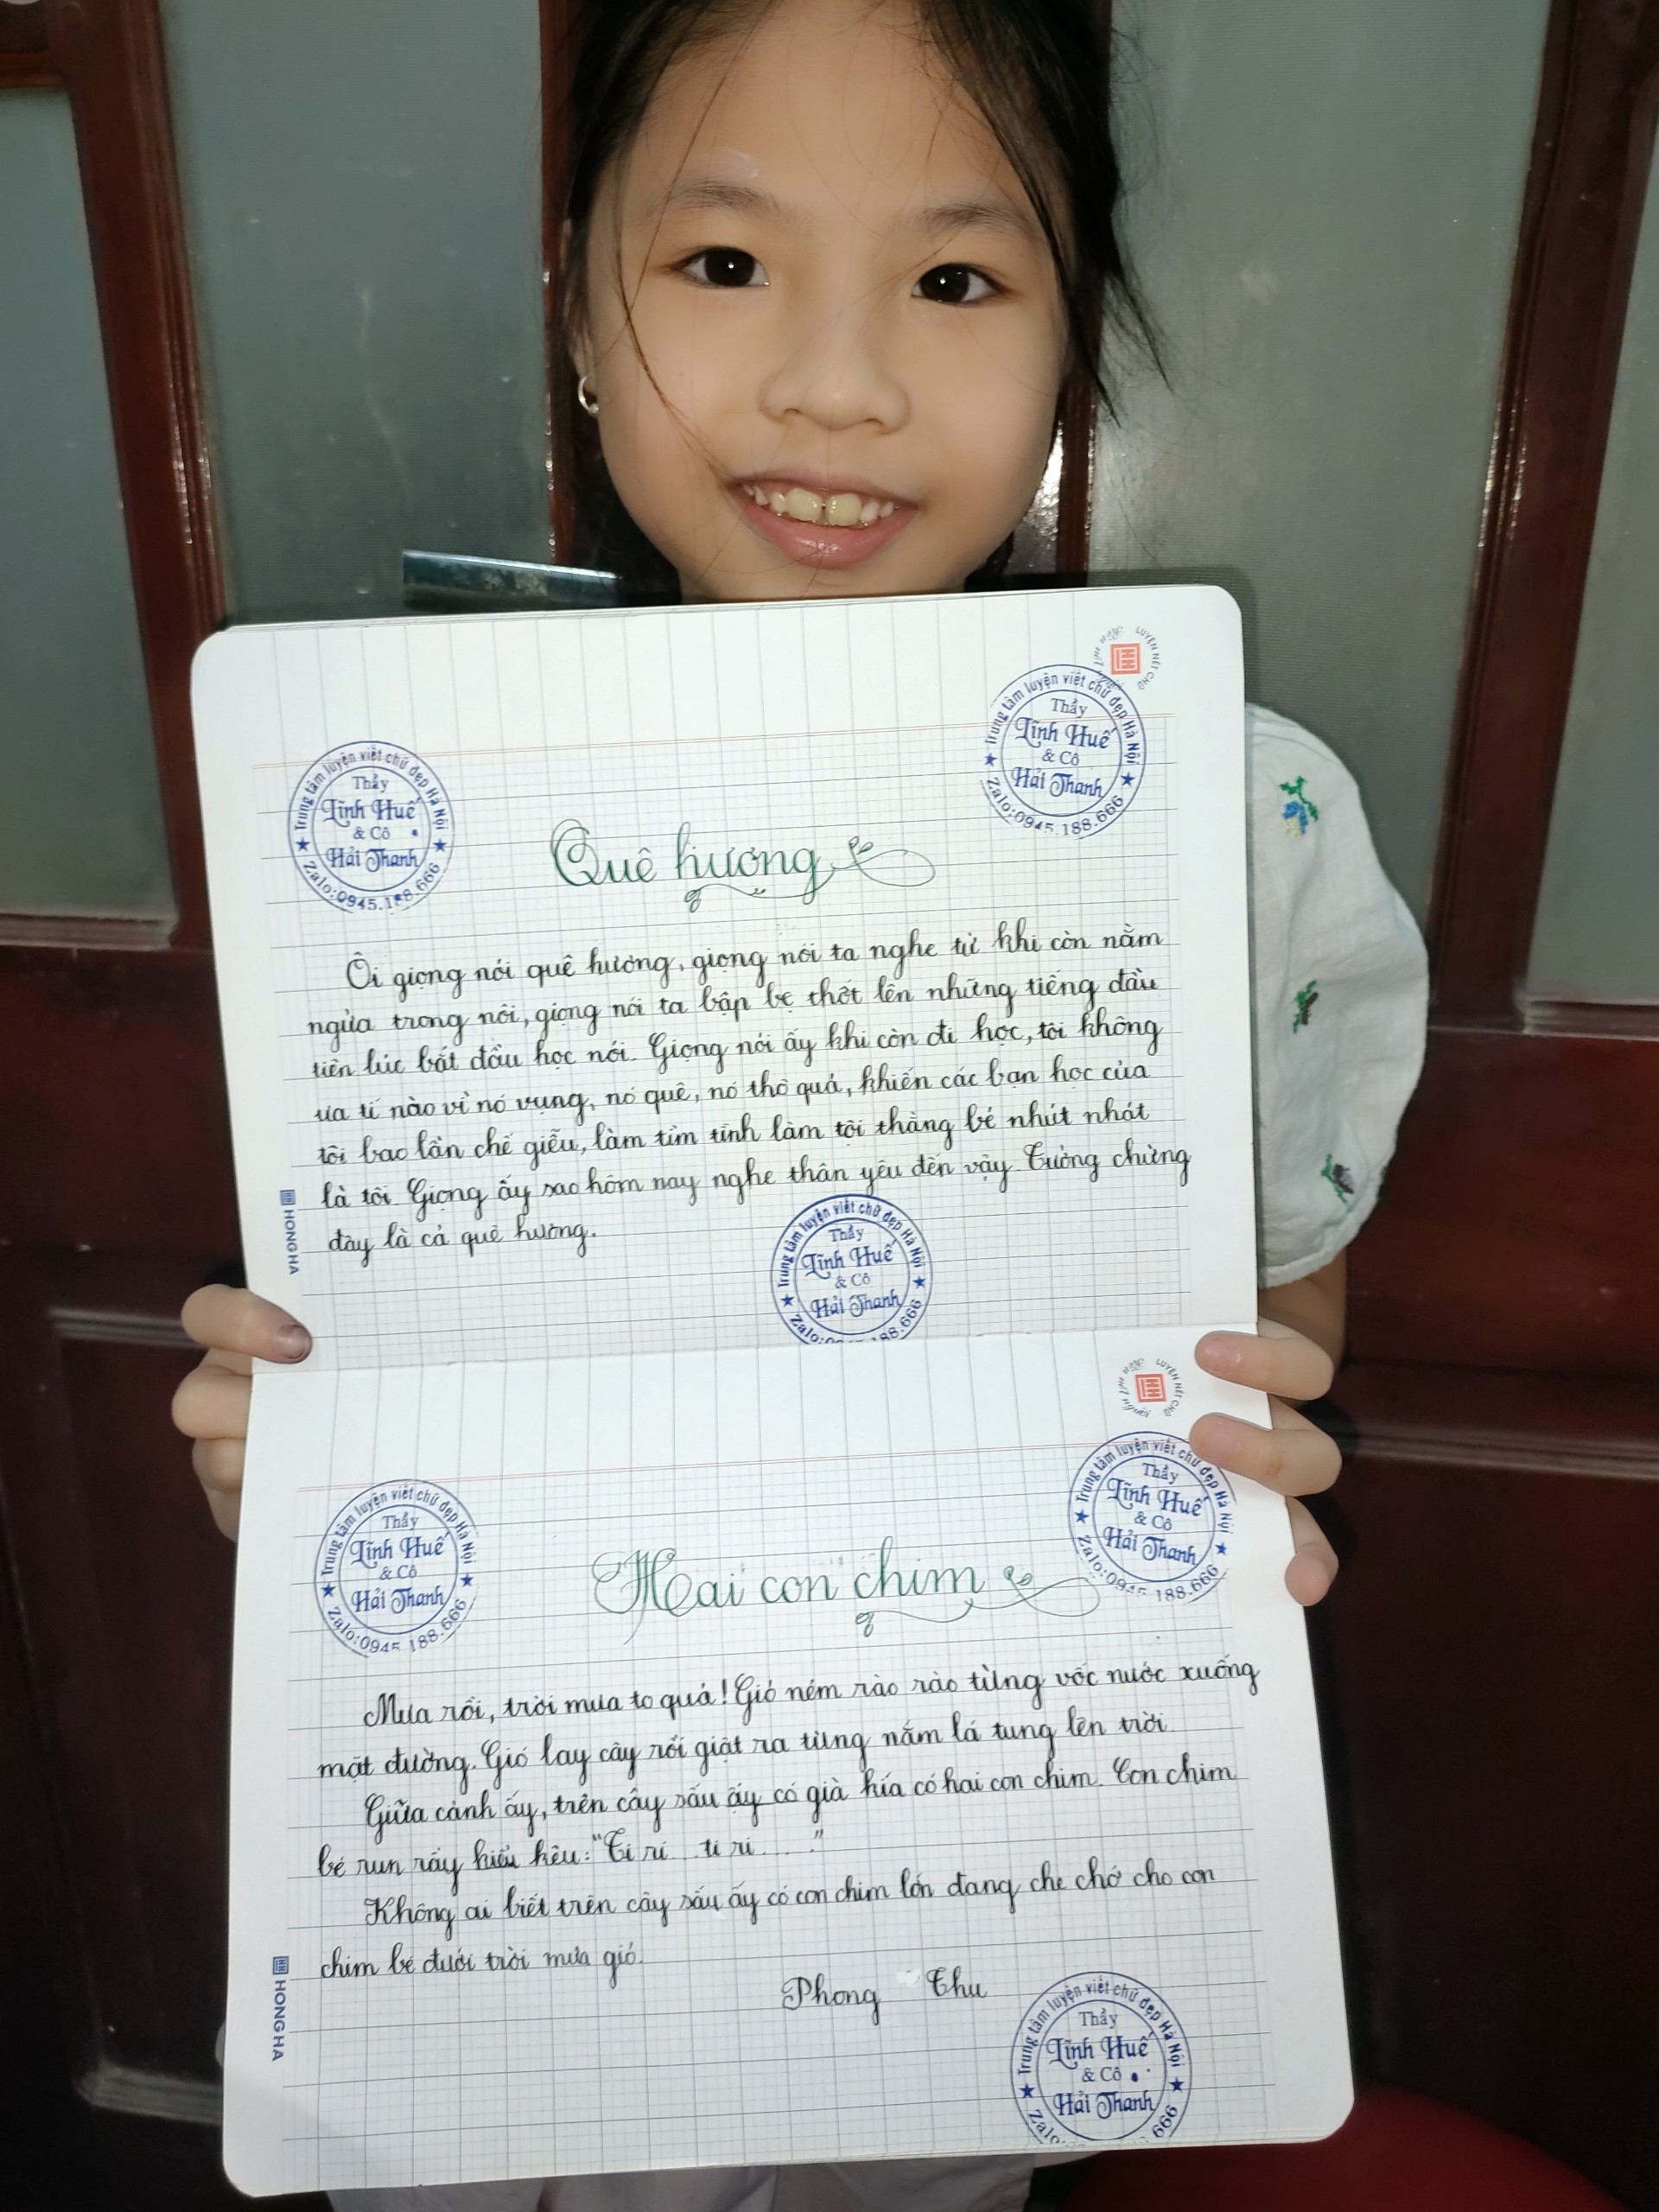 LUYỆN NÉT CHỮ
Trung tâm luyện viết chữ đẹp Hà Nội
Thầy
Tĩnh Huế
& Cô
Hải Thanh
Zalo:0945.188.666
Trung tâm luyện viết chữ đẹp Hà Nội
Thầy
Tĩnh Huế
& Cô
Hải Thanh
Zalo:0945.188.666
Quê hương
Ôi giọng nói quê hương, giọng nói ta nghe từ khi còn nằm
ngửa trong nôi, giọng nói ta bập bẹ thốt lên những tiếng đầu
tiên lúc bắt đầu học nói. Giọng nói ấy khi còn đi học, tôi không
ưa tí nào vì nó vụng, nó quê, nó thô quá, khiến các bạn học của
tôi bao lần chế giễu, làm tim tính làm tội thằng bé nhút nhát
là tôi. Giọng ấy sao hôm nay nghe thân yêu đến vậy. Tưởng chừng
đây là cả quê hương.
HONG HA
Trung tâm luyện viết chữ đẹp Hà Nội
Thầy
Tĩnh Huế
& Cô
Hải Thanh
Zalo:0945.188.666
LUYỆN NÉT CHỮ
Trung tâm luyện viết chữ đẹp Hà Nội
Thầy
Tĩnh Huế
& Cô
Hải Thanh
Zalo:0945.188.666
Trung tâm luyện viết chữ đẹp Hà Nội
Thầy
Tĩnh Huế
& Cô
Hải Thanh
Zalo:0945 188.666
Hai con chim
Mưa rồi, trời mưa to quá! Gió ném rào rào từng vốc nước xuống
mặt đường. Gió lay cây rồi giật ra từng nắm lá tung lên trời.
Giữa cảnh ấy, trên cây sấu ấy có già kía có hai con chim. Con chim
bé run rẩy kiểu kêu: "Ti ri ti ri ...."
Không ai biết trên cây sấu ấy có con chim lớn đang che chở cho con
chim bé dưới trời mưa gió.
Phong Thu
HONG HA
Trung tâm luyện viết chữ đẹp Hà Nội
Thầy
Tĩnh Huế
& Cô
Hải Thanh
Zalo: 666